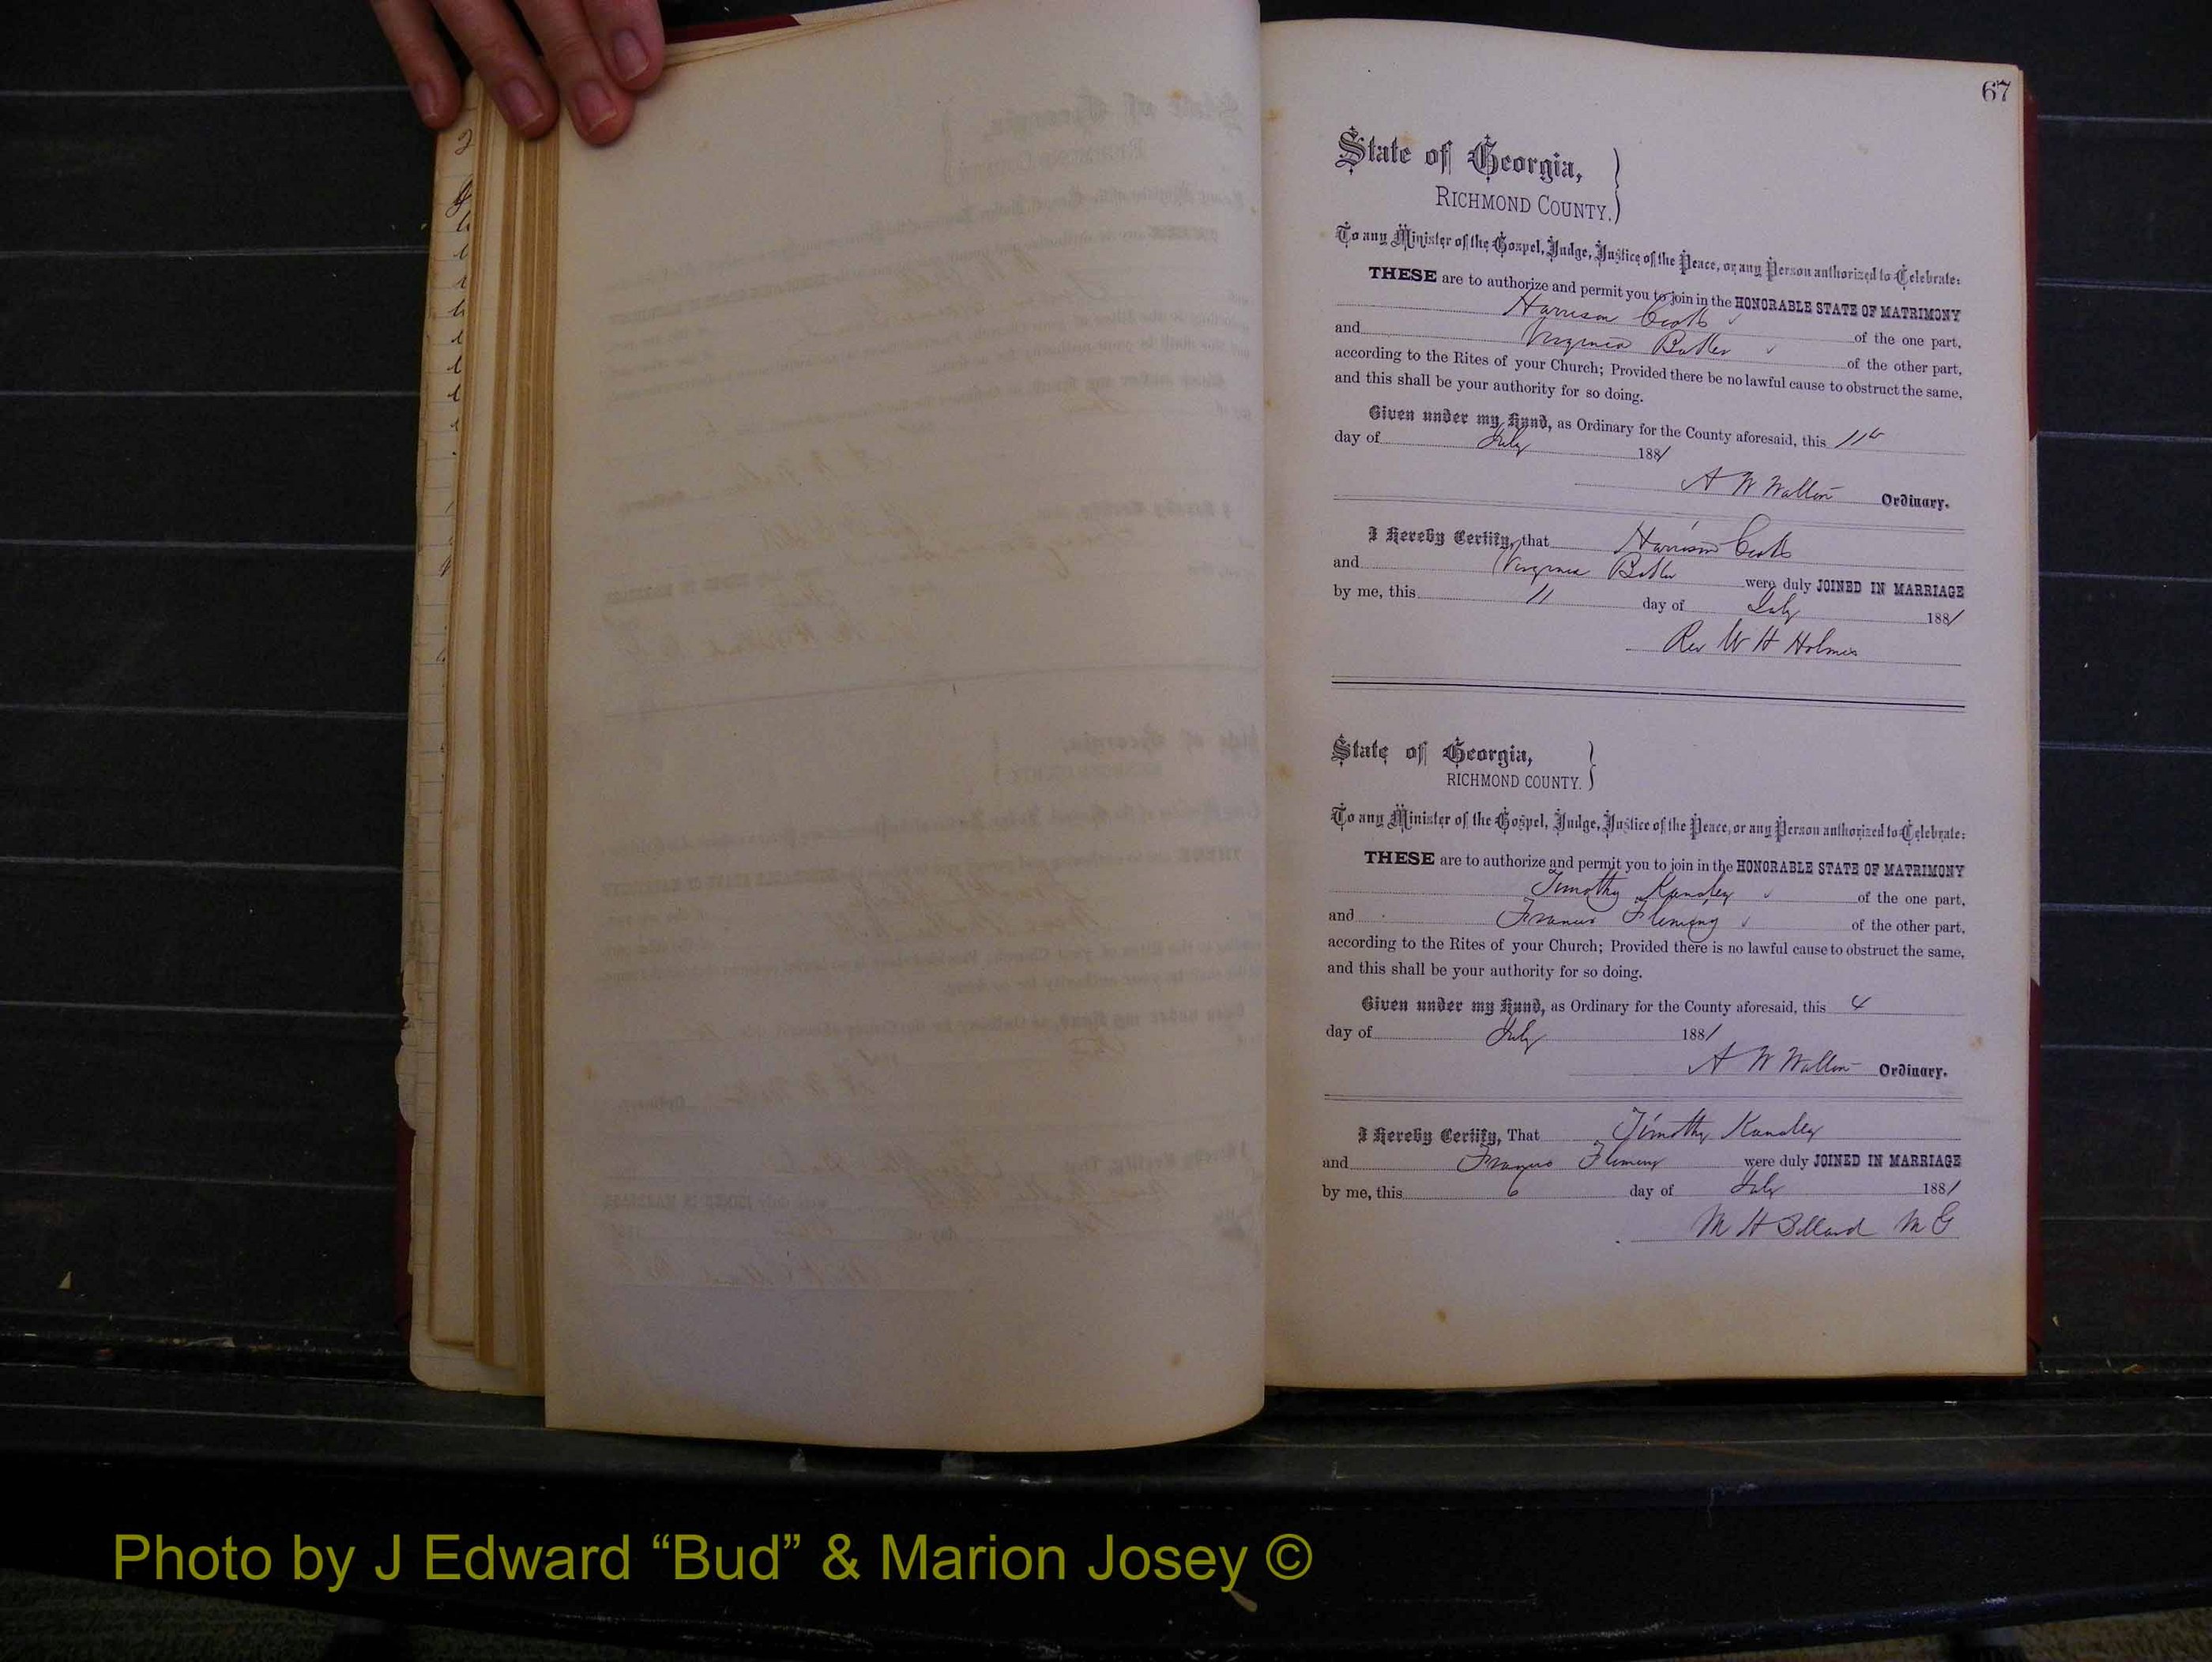 67
State of Georgia,
RICHMOND COUNTY.
To any Minister of the Gospel, Judge, Justice of the Peace, or any Person authorized to Celebrate:
THESE are to authorize and permit you to join in the HONORABLE STATE OF MATRIMONY
Harrison of the one part,
and Virginia Butler of the other part,
according to the Rites of your Church; Provided there be no lawful cause to obstruct the same,
and this shall be your authority for so doing.
Given under my Hand, as Ordinary for the County aforesaid, this 11th
day of July 1881
A W Walton Ordinary.
I Hereby Certify, that Harrison
and Virginia Butler were duly JOINED IN MARRIAGE
by me, this 11 day of July 1881
Rev W H Holmes
State of Georgia,
RICHMOND COUNTY.
To any Minister of the Gospel, Judge, Justice of the Peace, or any Person authorized to Celebrate:
THESE are to authorize and permit you to join in the HONORABLE STATE OF MATRIMONY
Timothy of the one part,
and Francis Fleming of the other part,
according to the Rites of your Church; Provided there is no lawful cause to obstruct the same,
and this shall be your authority for so doing.
Given under my Hand, as Ordinary for the County aforesaid, this 4
day of July 1881
A W Walton Ordinary.
I Hereby Certify, That Timothy
and Francis Fleming were duly JOINED IN MARRIAGE
by me, this 6 day of July 1881
M H M G
Photo by J Edward “Bud” & Marion Josey ©